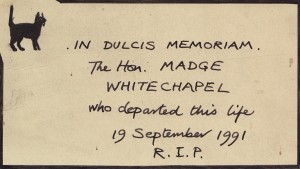 .IN DULCIS MEMORIAM.
The Hon. MADGE
WHITECHAPEL
who departed this life
19 September 1991
R.I.P.